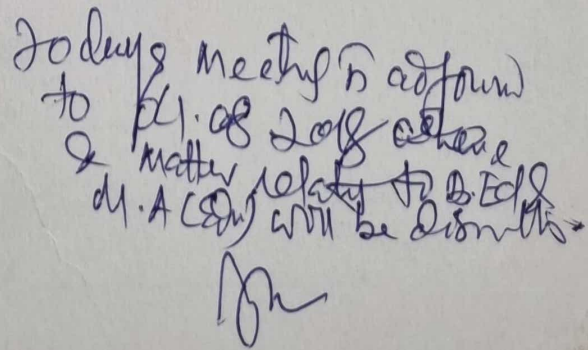 Todays meeting is adjourn
to 04.08 2018 where
& matter relating to B.Ed &
M.A (Edn) will be